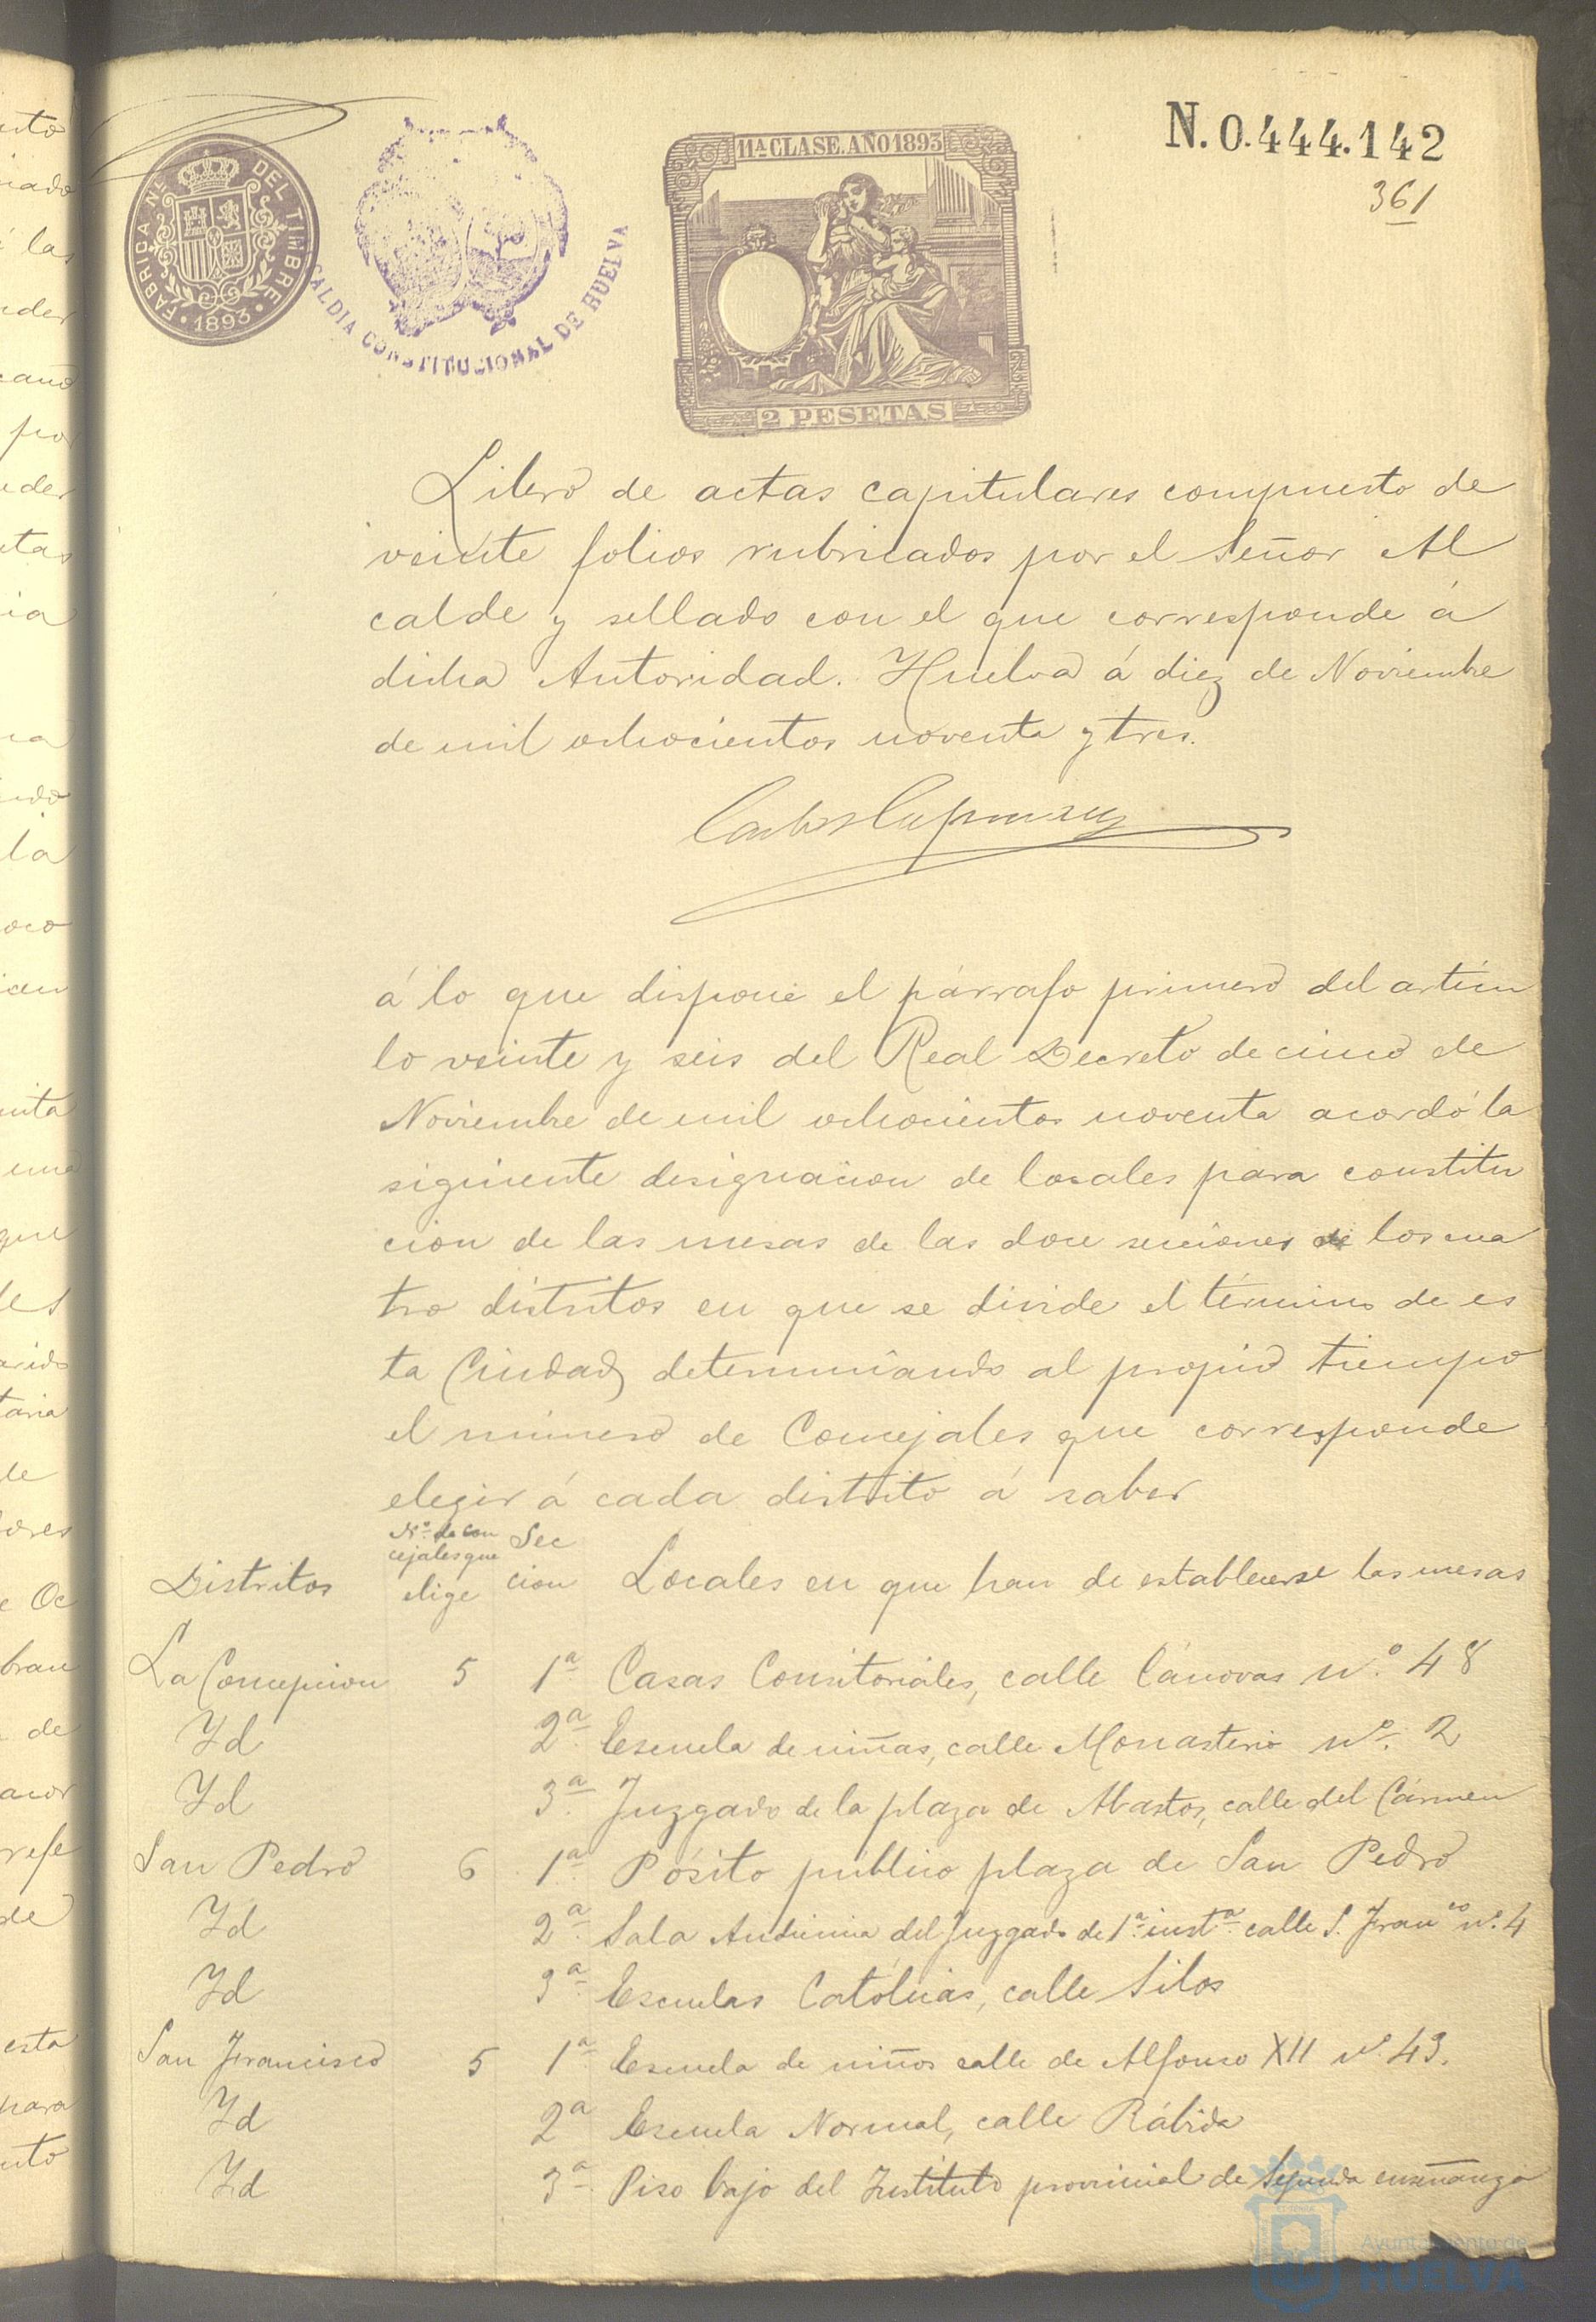 N. 0.444.142
361
FABRICA N.L DEL TIMBRE
1893
ALCALDIA CONSTITUCIONAL DE HUELVA
11A CLASE. AÑO 1893
2 PESETAS
Libro de actas capitulares compuesto de
veinte folios rubricados por el Señor Al
calde y sellado con el que corresponde á
dicha Autoridad. Huelva á diez de Noviembre
de mil ochocientos noventa y tres.
á lo que dispone el párrafo primero del artícu
lo veinte y seis del Real Decreto de cinco de
Noviembre de mil ochocientos noventa acordó la
siguiente designacion de locales para constitu
cion de las mesas de las doce secciones de los cua
tro distritos en que se divide el término de es
ta Ciudad, determinando al propio tiempo
el número de Concejales que corresponde
elegir á cada distrito á saber
Distritos Nº de con cejales que elige Sec cion Locales en que han de establecerse las mesas
La Concepcion 5 1ª Casas Consitoriales, calle Cánovas nº 48
Id 2ª Escuela de niñas, calle Monasterio nº 2
Id 3ª Juzgado de la plaza de Abastos, calle del Cármen
San Pedro 6 1ª Pósito público plaza de San Pedro
Id 2ª Sala Audiencia del Juzgado de 1ª instª calle S. Franco nº 4
Id 3ª Escuelas Católicas, calle Silos
San Francisco 5 1ª Escuela de niños calle de Alfonso XII nº 43.
Id 2ª Escuela Normal, calle Rábida
Id 3ª Piso bajo del Instituto provincial de Segunda enseñanza
Ayuntamiento de
HUELVA